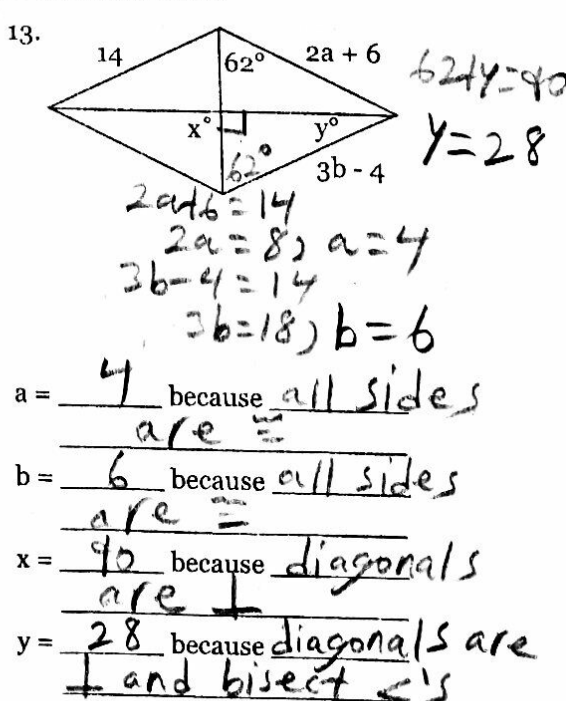 13.
14
62°
2a + 6
62+y=90
x°
y°
y=28
62°
3b - 4
2a+6=14
2a=8, a=4
3b-4=14
3b=18, b=6
a = 4 because all sides
are ≅
b = 6 because all sides
are ≅
x = 90 because diagonals
are ⊥
y = 28 because diagonals are
⊥ and bisect <'s